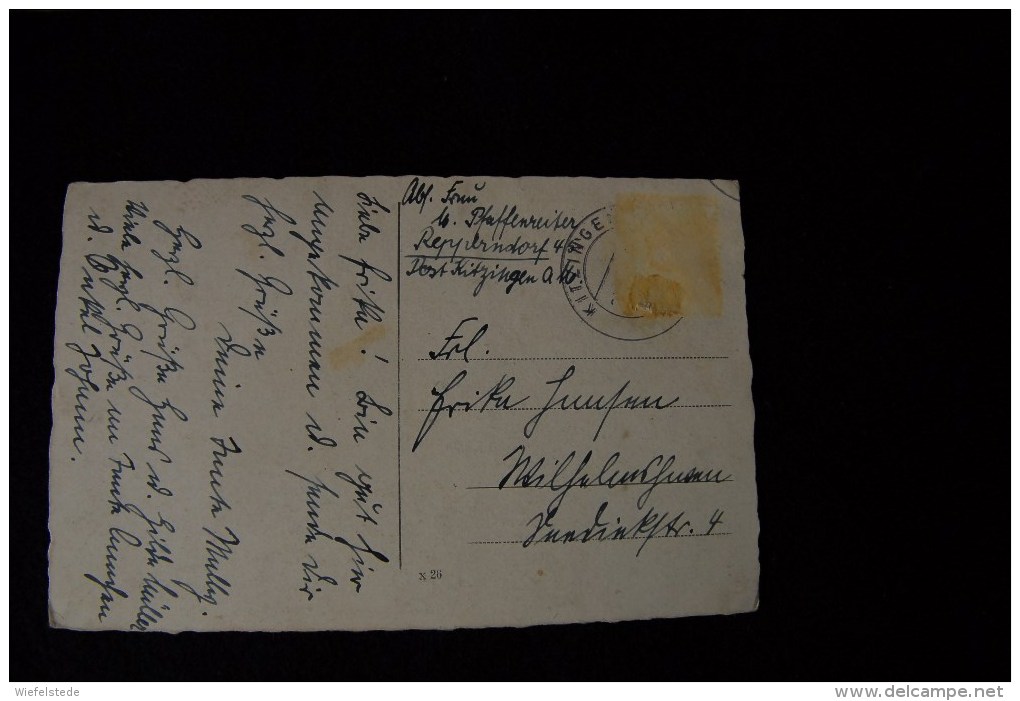 Liebe Erika! Bin gut hier
angekommen u. sende Dir
herzl. Grüße
Deine Tante Milly.
Herzl. Grüße Hans u. Hilde Müller
Viele herzl. Grüße an Tante Annchen
u. Onkel Johann.
Abs. Frau
M. Pfaffenreiter
Repperndorf 4
Post Kitzingen a. M.
KITZINGEN
Frl.
Erika Hansen
Wilhelmshaven
Seedeichstr. 4
x 26
Wiefelstede
http://www.delcampe.net